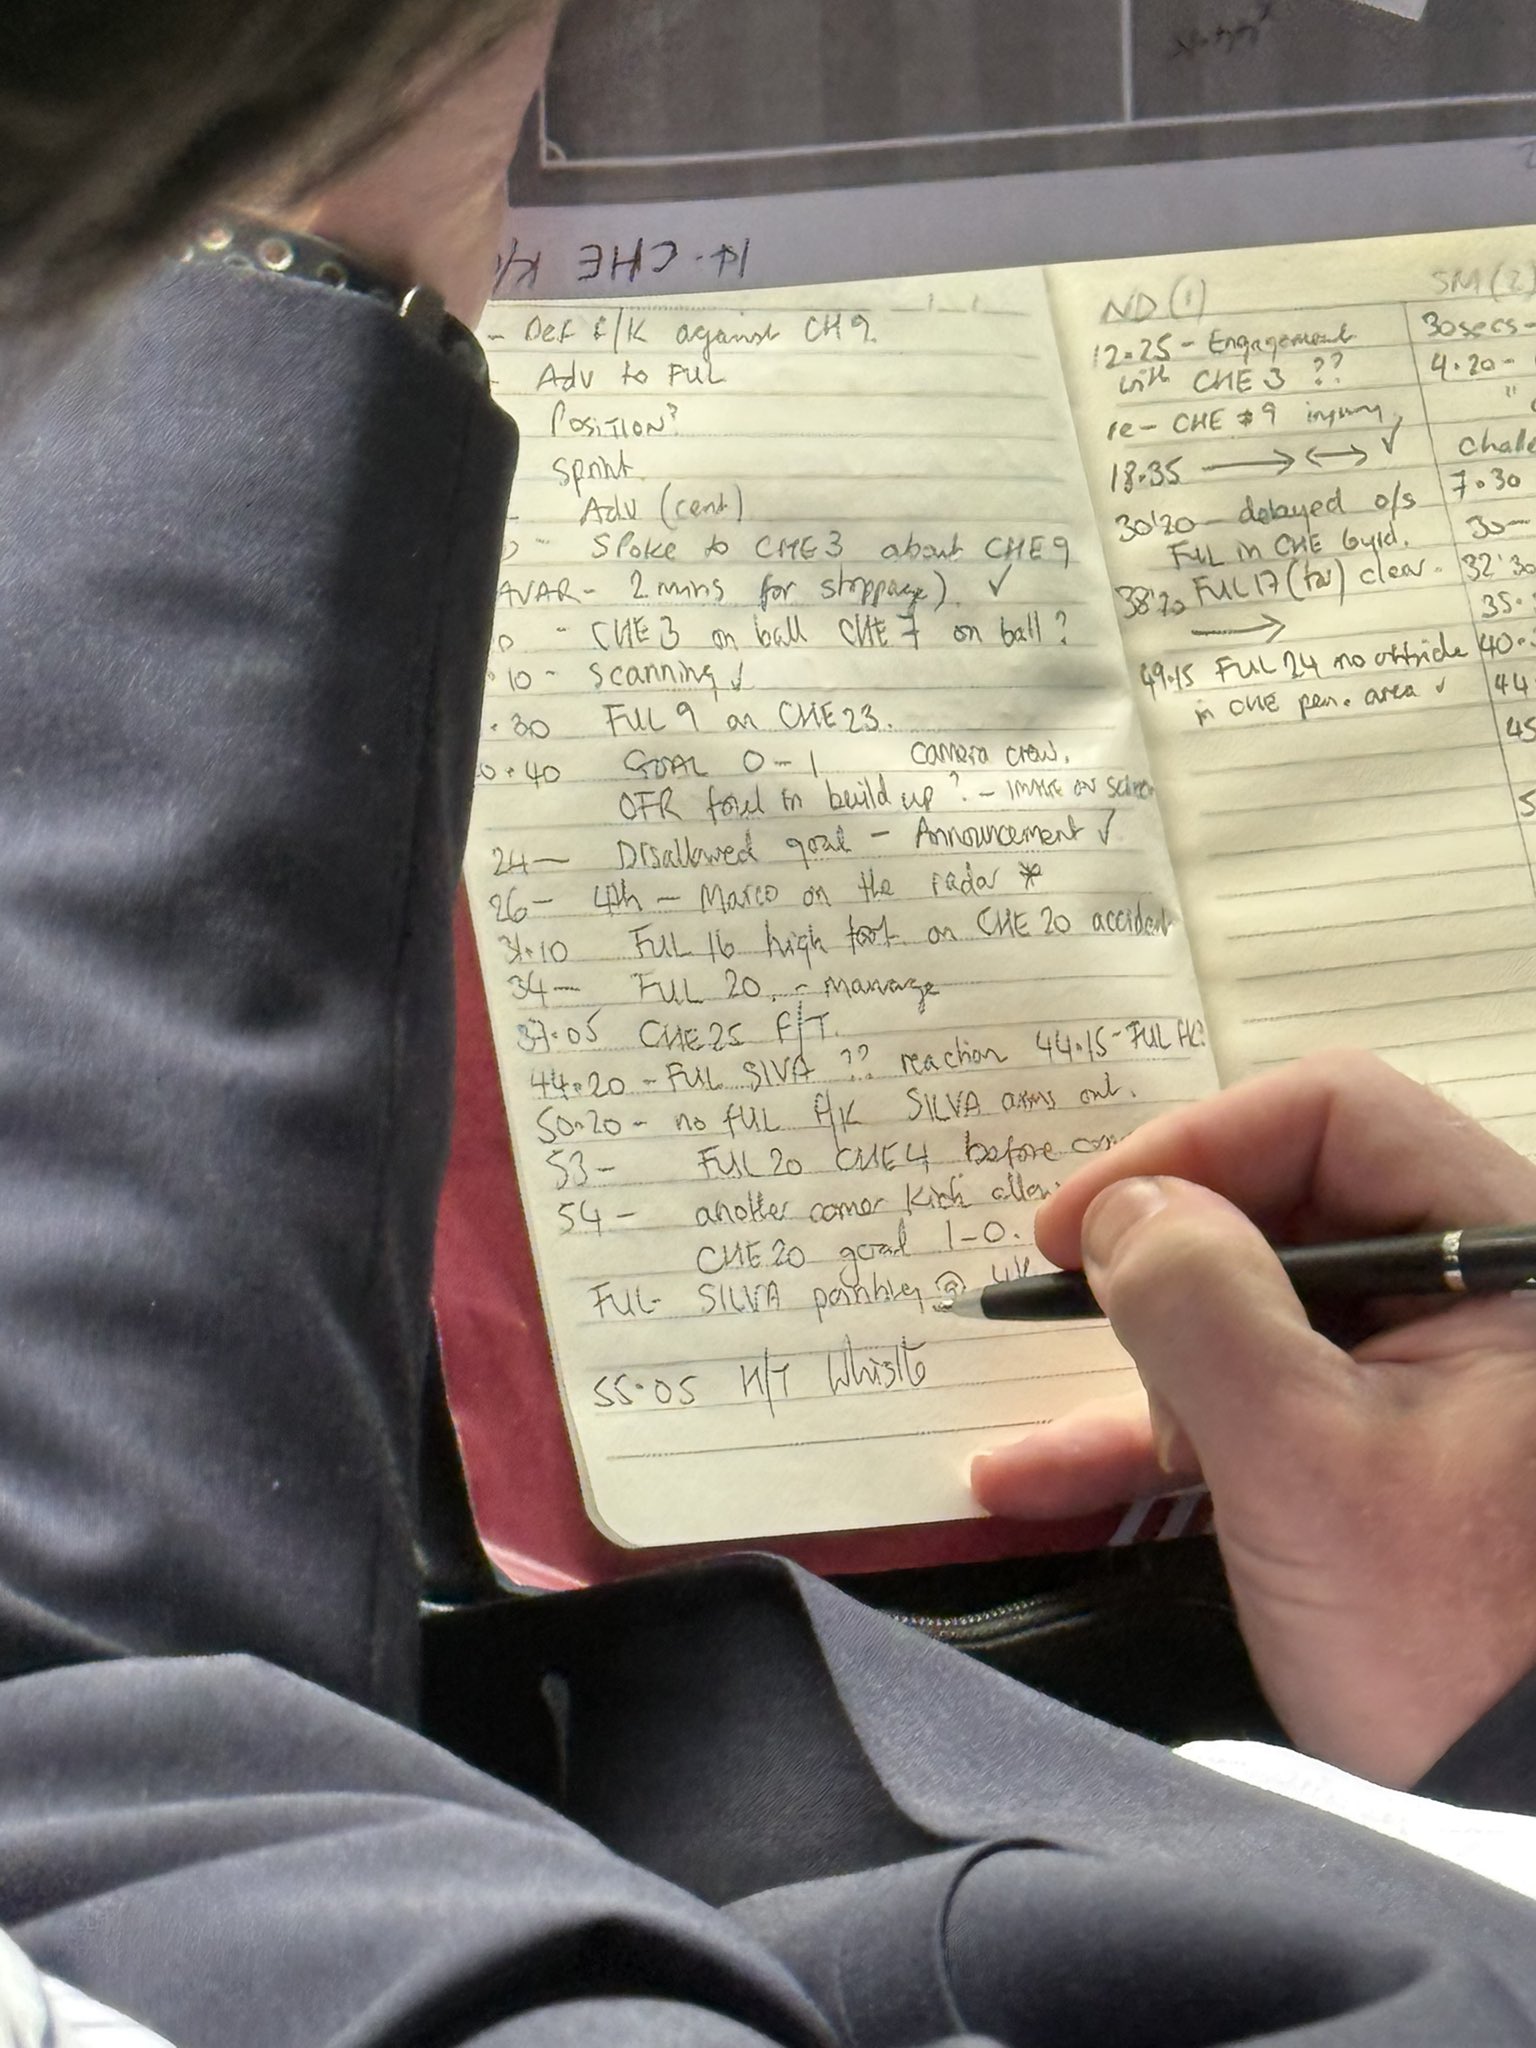 H. CHE
- Def F/K against CH9.
- Adv to FUL
Position?
Sprint
- Adv (cent)
- Spoke to CHE 3 about CHE 9
AVAR - 2 mins for stoppage) ✓
0 - CHE 3 on ball CHE 7 on ball?
.10 - scanning ✓
.30 FUL 9 on CHE 23.
0.40 GOAL 0-1 camera crew.
OFR foul in build up? - image on screen
24 - Disallowed goal - Announcement ✓
26 - 4th - Marco on the radar *
31.10 FUL 16 high foot on CHE 20 accident
34 - FUL 20. - manage
37.05 CHE 25 F/T.
44.20 - FUL SIVA ?? reaction 44.15 - FUL FK?
50.20 - no FUL F/K SILVA arms out.
53 - FUL 20 CHE 4 before
54 - another corner kick
CHE 20 goal 1-0.
FUL - SILVA pointing @
55.05 H/T Whistle
ND (1)
12.25 - Engagement
with CHE 3 ??
re - CHE #9 injury
18.35 → ↔ ✓
30'20 - delayed o/s
FUL in CHE
38'20 FUL 17 clear.
→
49.15 FUL 24 no offside
in CHE pen. area ✓
SM (2)
30secs -
4.20 -
"
7.30
30 -
32'30
35.
40.
44
45
5